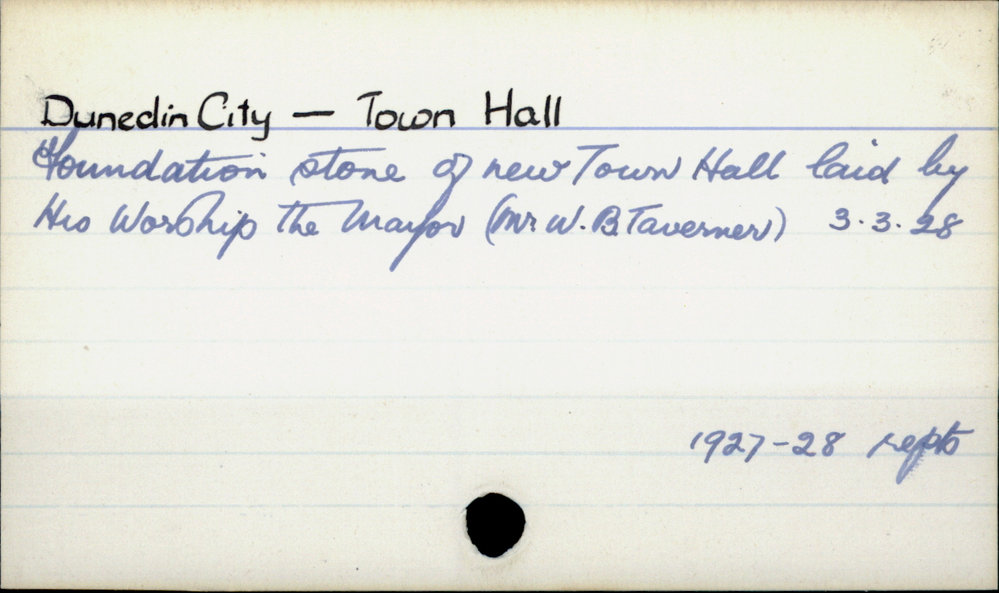 Dunedin City — Town Hall
Foundation stone of new Town Hall laid by
His Worship the Mayor (Mr. W. B. Taverner) 3.3.28
1927-28 repts